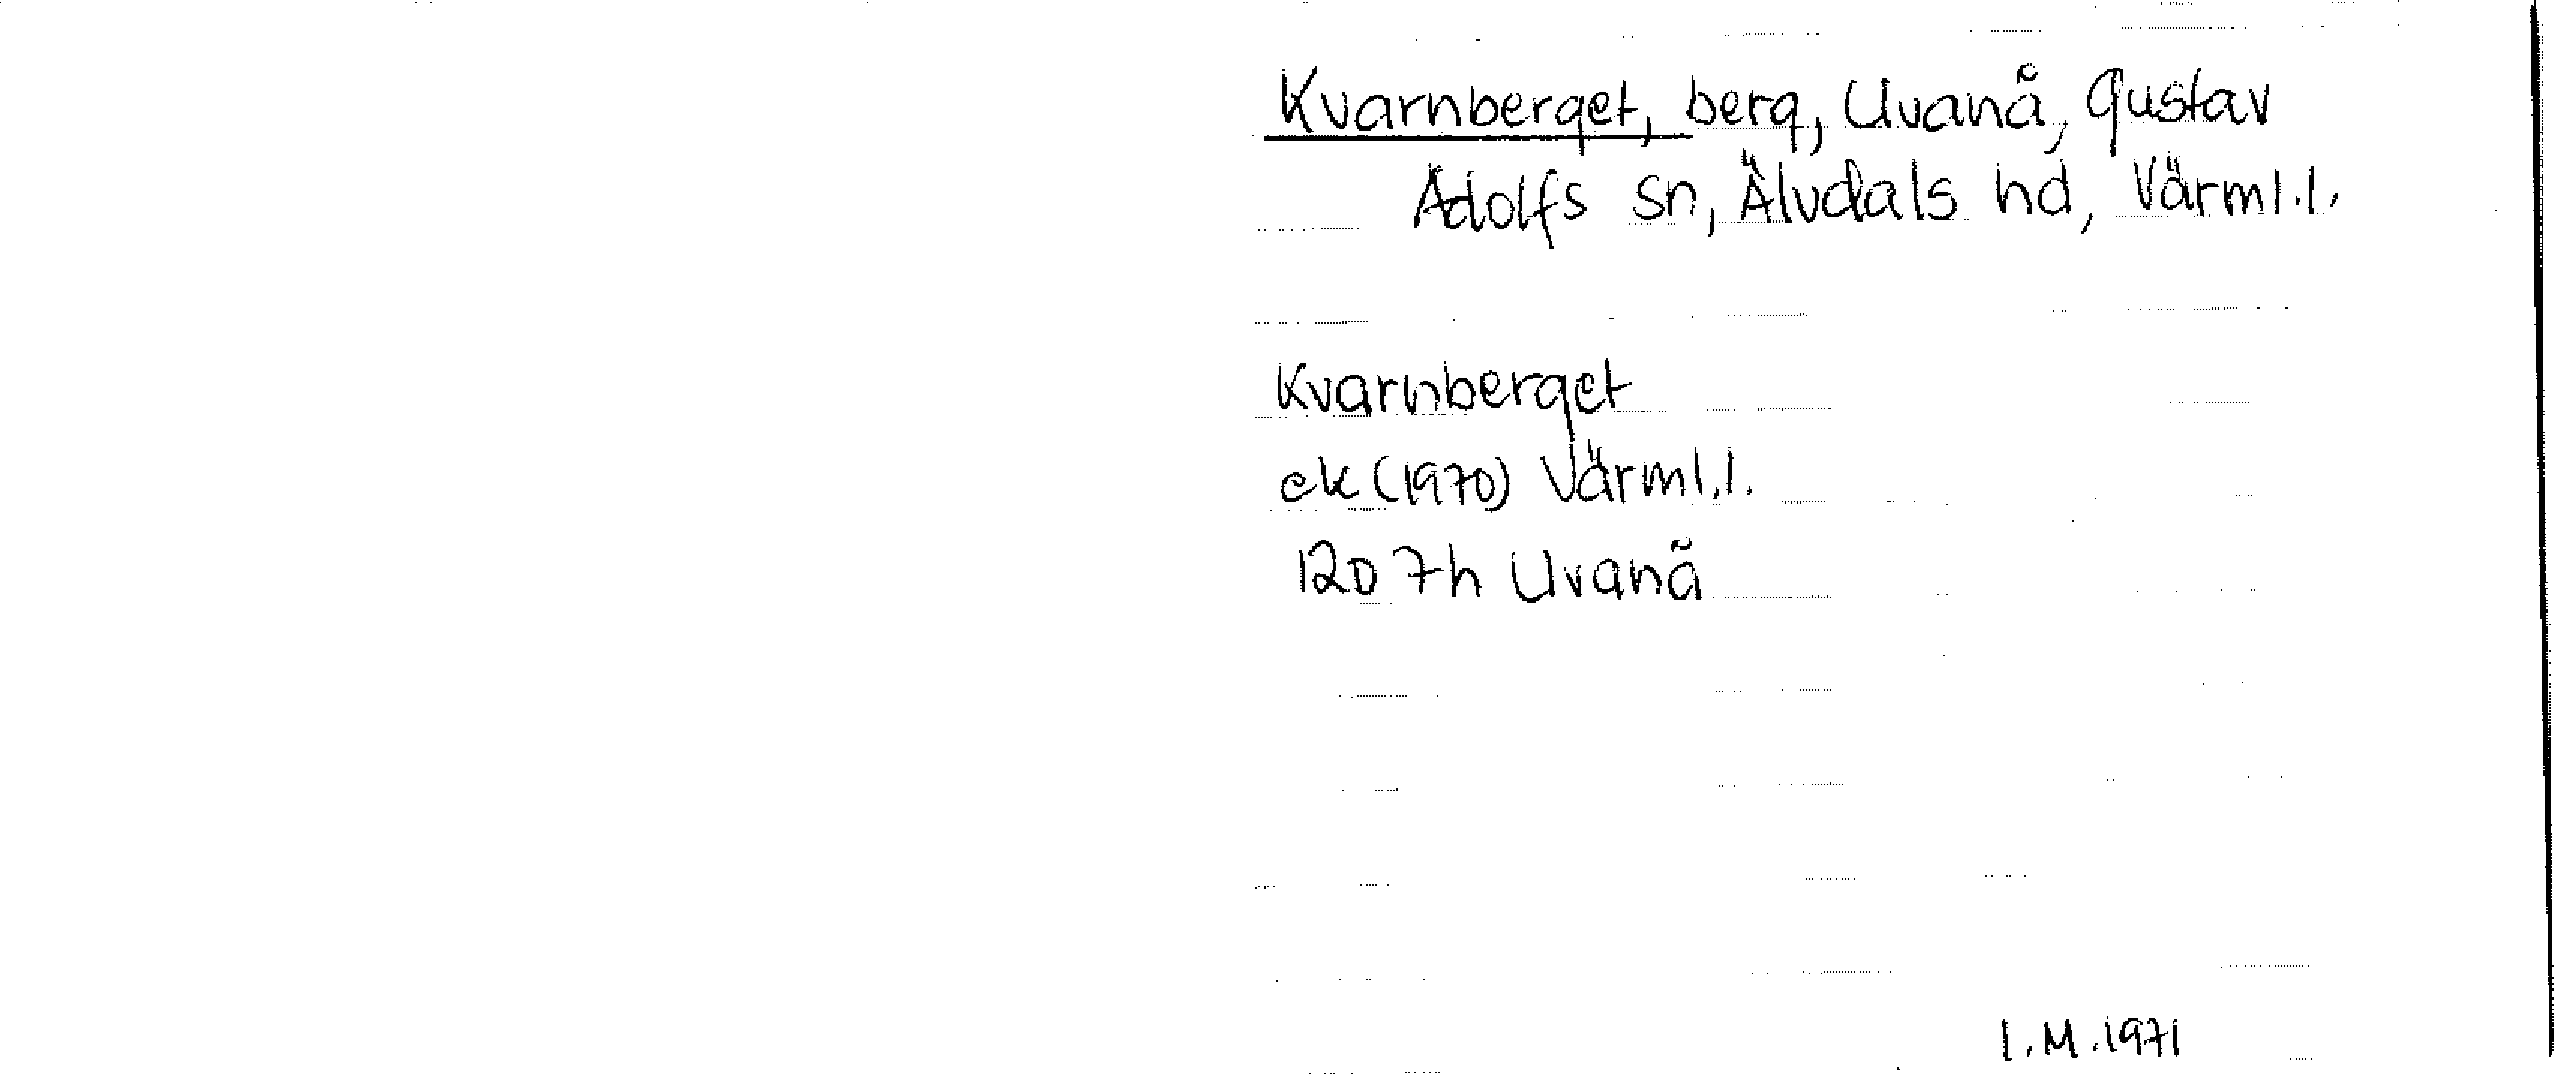 Kvarnberget, berg, Uvanå, Gustav
Adolfs sn, Älvdals hd, Värml.l.
Kvarnberget
ek (1970) Värml.l.
12D 7h Uvanå
I.M.1971